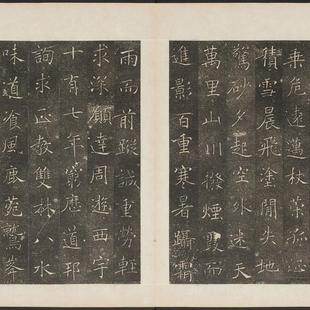 乘危遠邁杖策孤征
積雪晨飛塗閒失地
驚砂夕起空外迷天
萬里山川撥煙霞而
進影百重寒暑躡霜
雨而前蹤誠重勞輕
求深願達周遊西宇
十有七年窮歷道邦
詢求正教雙林八水
味道飡風鹿菀鷲峯